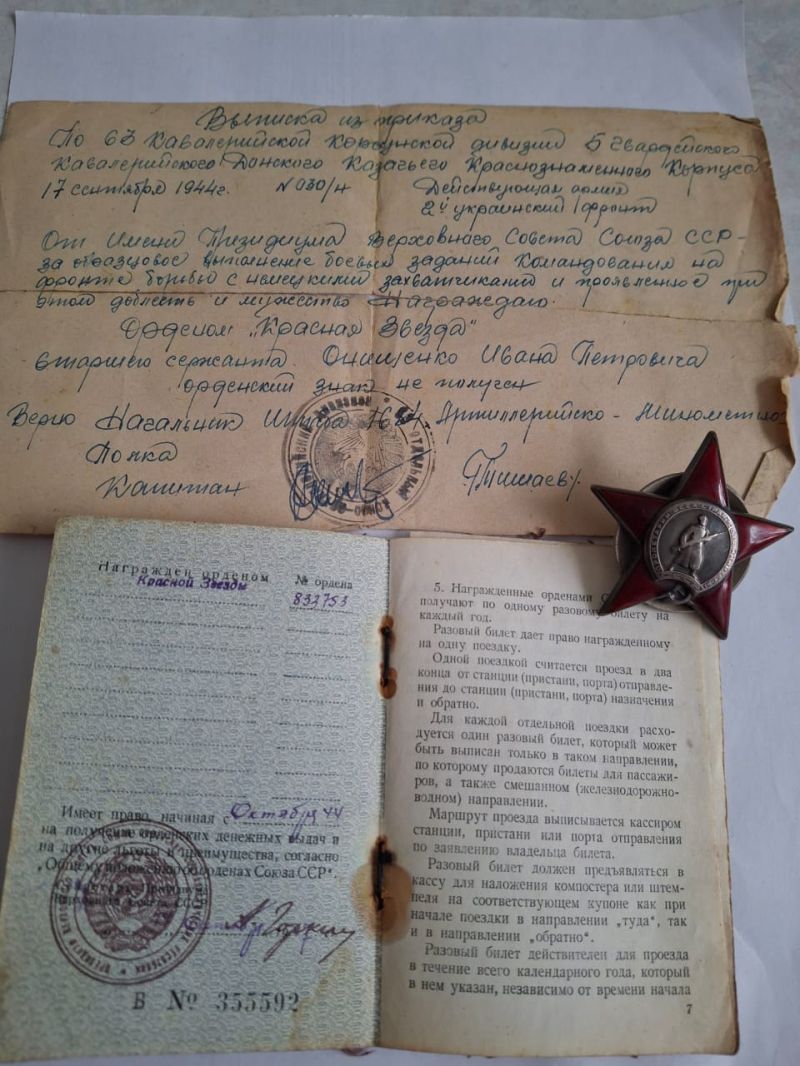 Выписка из приказа
По 63 Кавалерийской Корсунской дивизии 5 Гвардейского
Кавалерийского Донского Казачьего Краснознаменного Корпуса
17 сентября 1944г. N 030/н Действующая армия
2й украинский фронт
От Имени Президиума Верховного Совета Союза ССР-
за образцовое выполнение боевых заданий Командования на
фронте борьбы с немецкими захватчиками и проявленное при
этом доблесть и мужество Награждаю.
Орденом „Красная Звезда"
старшего сержанта. Онищенко Ивана Петровича
орденский знак не получен
Верно Начальник Штаба Артиллерийско-Минометного
Полка
Капитан
Награжден орденом № ордена
Красной Звезды 832753
Имеет право, начиная Октября 44
на получение орденских денежных выдач и
на другие льготы и преимущества, согласно
„Общему положению об орденах Союза ССР".
В № 355592
5. Награжденные орденами
получают по одному разовому билету на
каждый год.
Разовый билет дает право награжденному
на одну поездку.
Одной поездкой считается проезд в два
конца от станции (пристани, порта) отправле-
ния до станции (пристани, порта) назначения
и обратно.
Для каждой отдельной поездки расхо-
дуется один разовый билет, который может
быть выписан только в таком направлении,
по которому продаются билеты для пассажи-
ров, а также смешанном (железнодорожно-
водном) направлении.
Маршрут проезда выписывается кассиром
станции, пристани или порта отправления
по заявлению владельца билета.
Разовый билет должен предъявляться в
кассу для наложения компостера или штем-
пеля на соответствующем купоне как при
начале поездки в направлении „туда", так
и в направлении „обратно".
Разовый билет действителен для проезда
в течение всего календарного года, который
в нем указан, независимо от времени начала
7